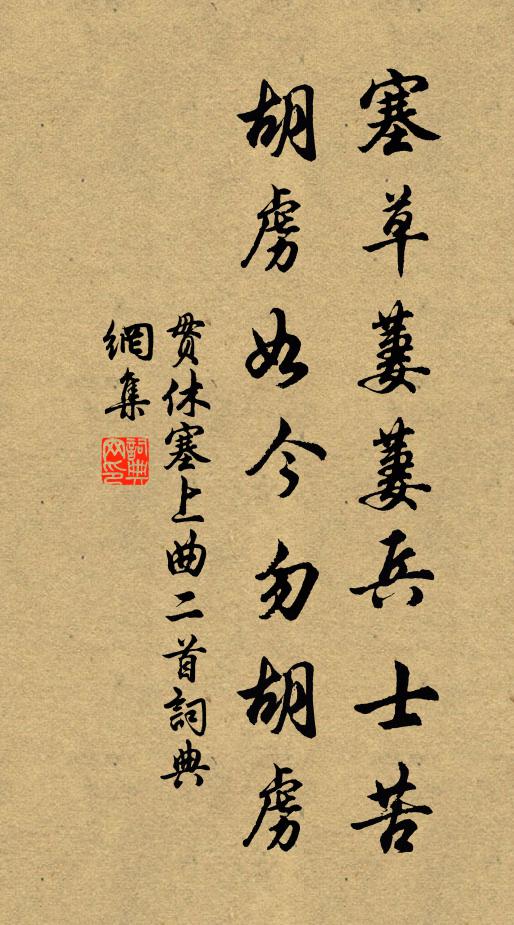 塞草萋萋兵士苦
胡虏如今勿胡虏
貫休塞上曲二首詞典
網集
詞典
网印